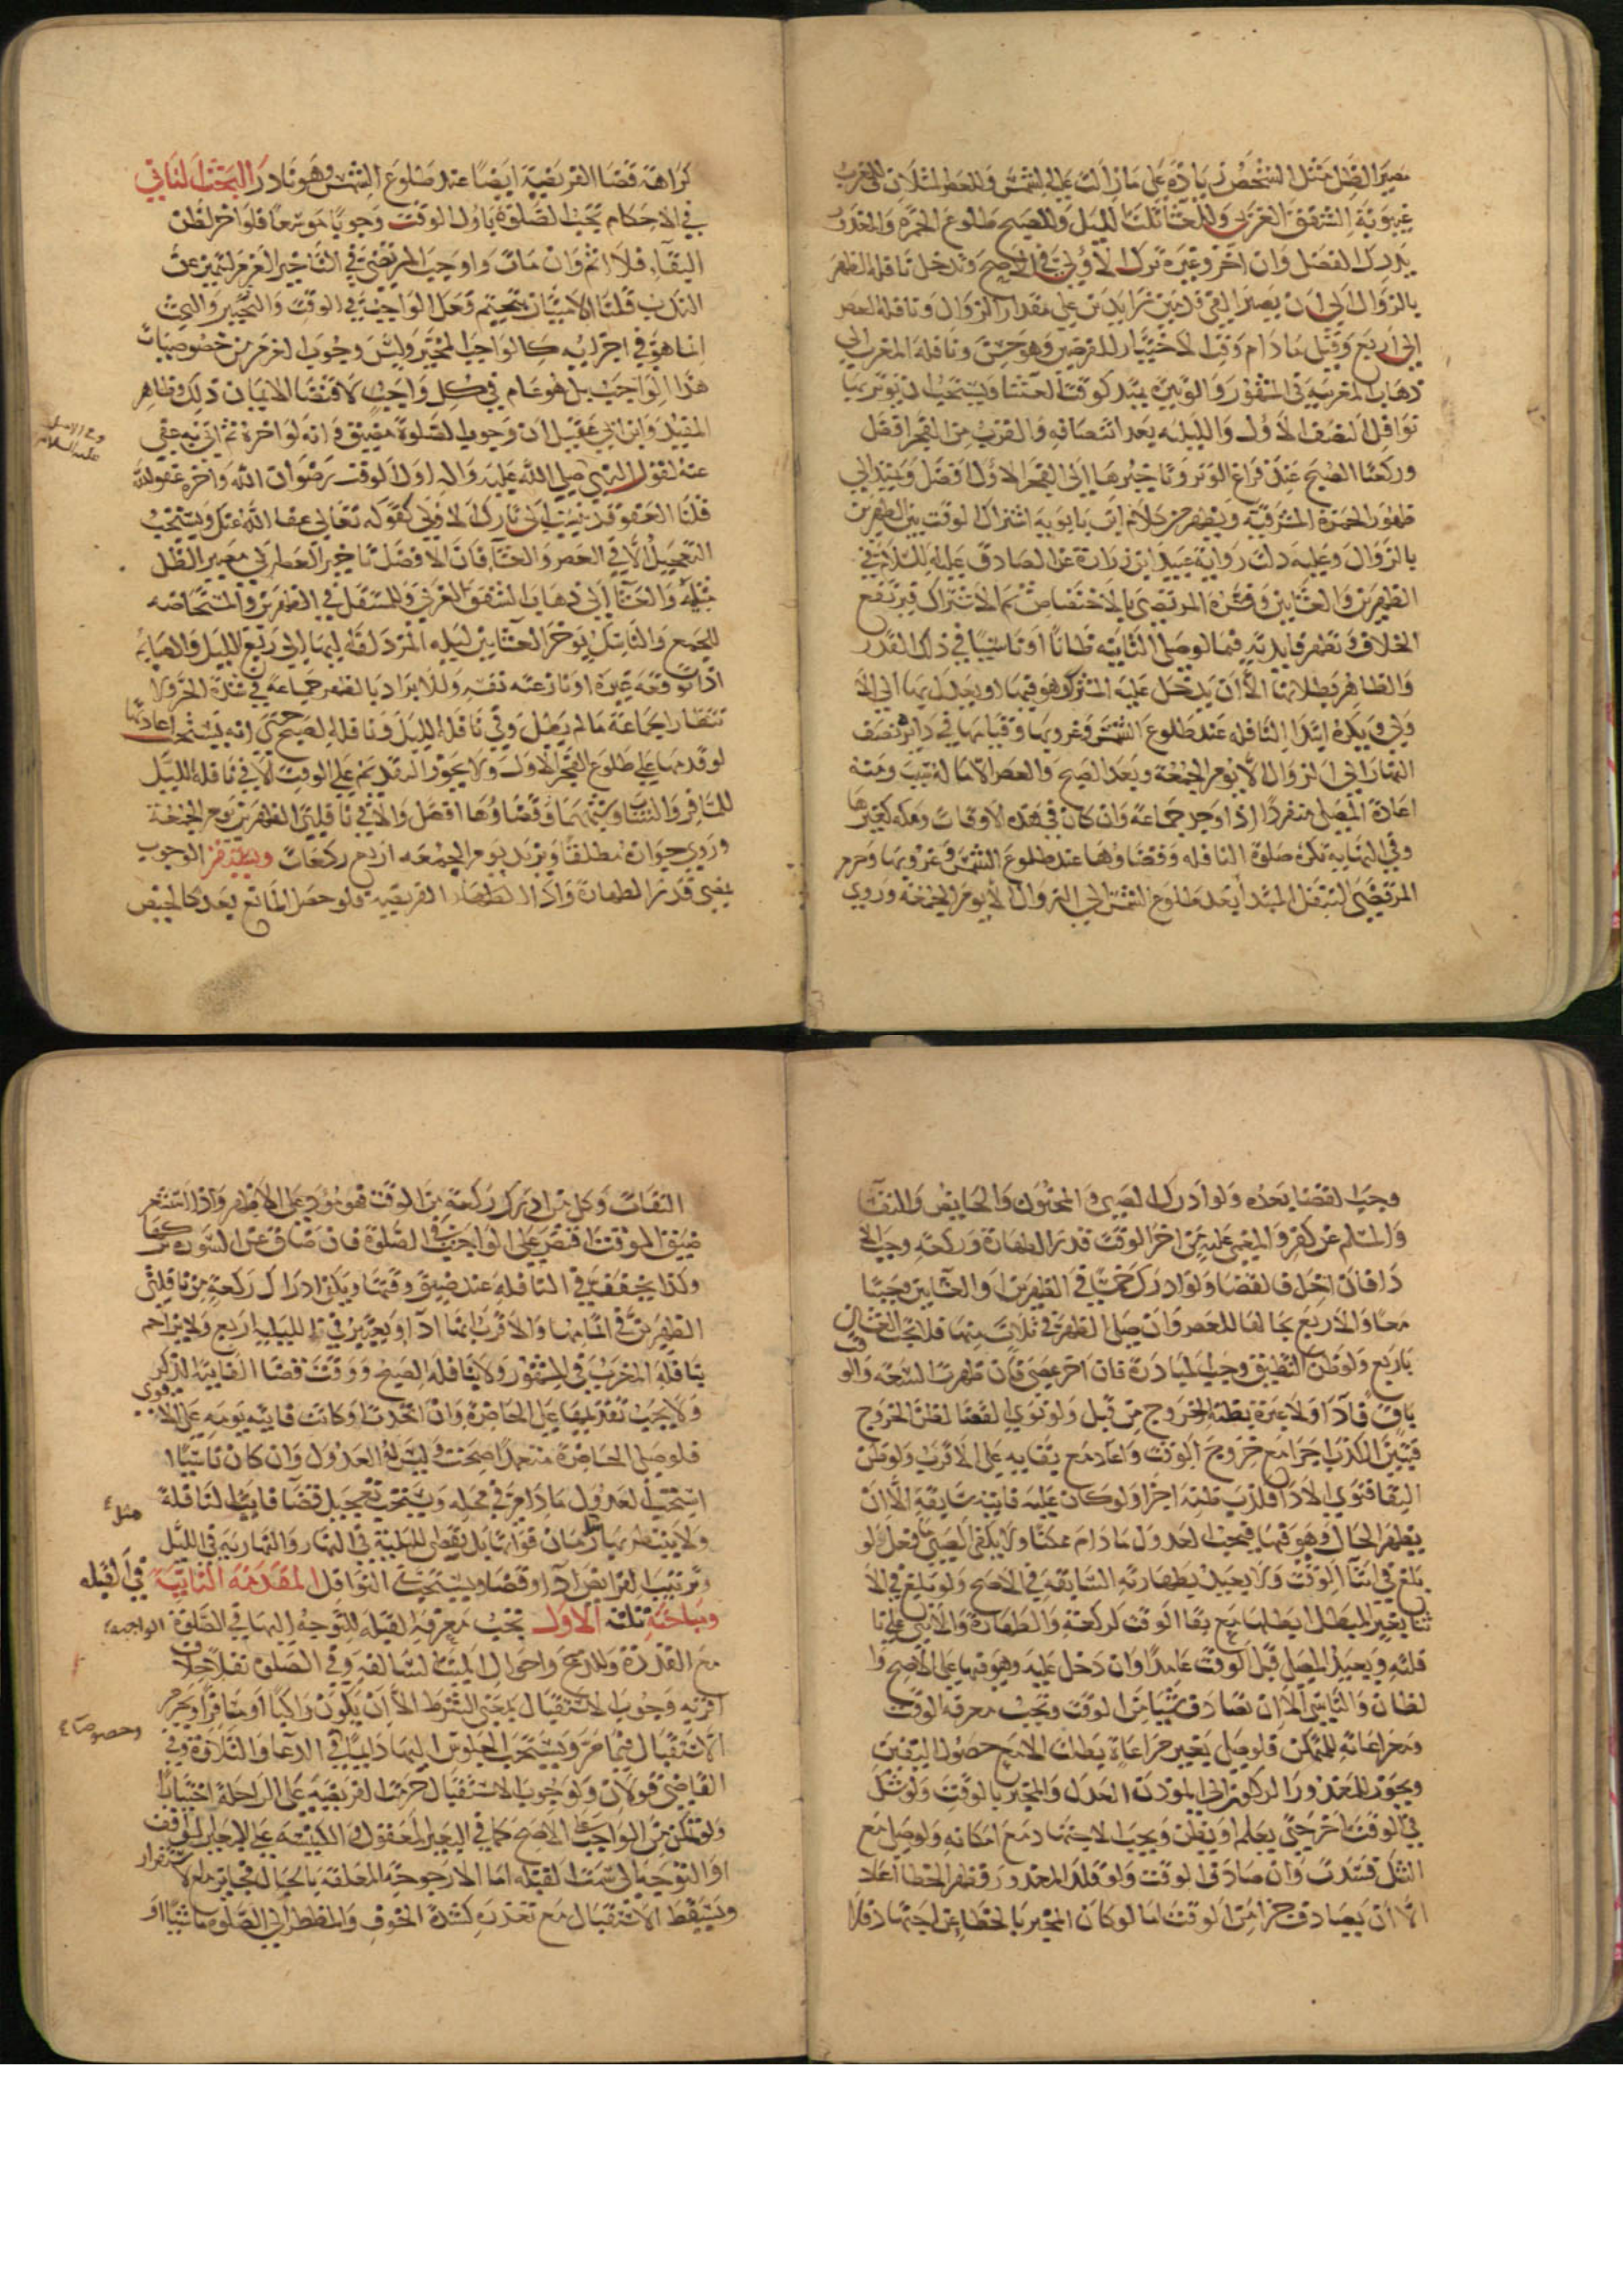 مصير الظل مثل الشخص زيادة على ما زالت عليه الشمس وللعصر المثلان وللمغرب
غيبوبة الشفق الغربى وللعشا ثلث الليل وللصبح طلوع الحمرة والمعذور
يدرك الفضل وان اخر وغيره ترك الاولى فى الاصح وتدخل نافلة الظهر
بالزوال الى ان يصير الفئ قدمين زايدين على مقدار الزوال ونافلة العصر
الى اربع وقيل مادام وقت الاختيار للفرضين وهو حسن ونافلة المغرب الى
ذهاب المغربية فى المشهور والوتيرة يمتد كوقت العشا ويستحب ان يوتر بها
نوافل النصف الاول والليلية بعد انتصافه والقرب من الفجر افضل
وركعتا الصبح عند فراغ الوتر وتاخيرها الى الفجر الاول افضل ويمتد الى
ظهور الحمرة المشرقية ويظهر من كلام ابن بابويه اشتراك الوقت بين الظهرين
بالزوال وعليه دلت رواية عبيد ابن زرارة عن الصادق عليه السلام فى
الظهرين والعشايين وفسره المرتضى بالاختصاص ثم الاشتراك فيرتفع
الخلاف وتظهر فايدته فيما لو صلى الثانية ظانا او ناسيا فى ذلك القدر
والظاهر بطلانها الا ان يدخل عليه المشترك وهو فيها او يعدل بها الى الا
ولى ويكره ابتدا النافلة عند طلوع الشمس وغروبها وقيامها فى دايرة نصف
النهار الى الزوال الا يوم الجمعة وبعد الصبح والعصر الا ما له سبب ومنه
اعادة المصلى منفردا اذا وجد جماعة وان كان فى هذه الاوقات ومكة كغيرها
وفى النهاية تكره صلوة النافلة وقضاوها عند طلوع الشمس وغروبها وحرم
المرتضى التنفل المبتدا بعد طلوع الشمس الى الزوال الا يوم الجمعة وروى
كراهة قضا الفريضة ايضا عند طلوع الشمس وهو نادر البحث الثانى
فى الاحكام تجب الصلوة باول الوقت وجوبا موسعا فلو اخر لظن
البقاء فلا اثم وان مات واوجب المرتضى فى التاخير العزم لتميز عن
الندب قلنا الامتياز بتحتم فعل الواجب فى الوقت والتخيير والبحث
انما هو فى اجزايه كالواجب المخير وليس وجوب العزم من خصوصيات
هذا الواجب بل هو عام فى كل واجب لاقتضا الايمان ذلك وظاهر
المفيد وابن ابى عقيل ان وجوب الصلوة مضيق وانه لو اخره ثم اتى به عفى
عنه لقول النبى صلى الله عليه واله اول الوقت رضوان الله واخره عفو الله
قلنا العفو قد ينسب الى تارك الاولى كقوله تعالى عفا الله عنك ويستحب
التعجيل الا فى العصر والعشاء فان الافضل تاخير العصر الى مصير الظل
مثله والعشاء الى ذهاب الشفق الغربى وللمتنفل فى الظهرين والمستحاضه
للجمع والناسك يوخر العشايين ليلة المزدلفة اليها الى ربع الليل والصايم
اذا توقعه غيره او نازعته نفسه وللابراد بالظهر جماعة فى شدة الحر ولا
نتظار الجماعة ما لم يطل وفى نافلة الليل ونافلة الصبح حتى انه يستحب اعادتها
لو قدمها على طلوع الفجر الاول ولا يجوز التقديم على الوقت الا فى نافلة الليل
للمسافر والشاب وشبههما وقضاوها افضل والا فى نافلتى الظهرين يوم الجمعة
وروى جوازه مطلقا ويزيد يوم الجمعه اربع ركعات ويستقر الوجوب
بمضى قدر الطهارة واداء الفريضة فلو حصل المانع بعد كالحيض
وجب القضا بعده ولو ادرك الصبى والمجنون والحايض والنفسآ
والمسلم عن كفر والمغمى عليه من اخر الوقت قدر الطهارة وركعة وجب الا
دا فان اخل فالقضا ولو ادرك خمسا فى الظهرين والعشايين وجبتا
معا والاربع بحالها للعصر وان صلى الظهر فى ثلاث منها فلا يجب العشا
باربع ولو ظن الضيق وجب المبادرة فان اخر عصى فان ظهرت السعه والو
باق فادآ ولا عبرة بظنه الخروج من قبل ولو نوى القضا لظن الخروج
فتبين الكذب اجزا مع خروج الوقت واعاد مع بقايه على الاقرب ولو ظن
البقا فنوى الادا فكذب ظنه اجزا ولو كان عليه فايتة سابقة الا ان
يظهر الحال وهو فيها فيجب العدول مادام ممكنا ولا يكفى الصبى ما فعل لو
بلغ فى اثنا الوقت ولا يعيد طهارته السابقة فى الاصح ولو بلغ فى الا
ثنا بغير المبطل ابطلها مع بقا الوقت لركعة والطهارة والا بنى على نا
فلته ويعيد المصلى قبل الوقت عامدا وان دخل عليه وهو فيها على الاصح وا
لظان والناسى الا ان تصادف شيا من الوقت وتجب معرفة الوقت
ومراعاته للمتمكن فلو صلى بغير مراعاة بطلت الا مع حصول اليقين
ويجوز للمعذور الركون الى المؤذن العدل والمخبر بالوقت ولو شك
فى الوقت اخر حتى يعلم او يظن ويجب الاجتهاد مع امكانه ولو صلى مع
الشك فسدت وان صادف الوقت ولو قلد المعذور فظهر الخطا اعاد
الا ان يصادف جزا من الوقت اما لو كان المخبر بالخطا عن اجتهاد فلا
التفات وكل من ادرك ركعة من الوقت فهو مؤد على الاظهر واذا استشعر
ضيق الوقت اقتصر على الواجب فى الصلوة فان ضاق عن السورة تركها
وكذا يخفف فى النافلة عند ضيق وقتها ويكفى ادراك ركعة من نافلتى
الظهرين فى اتمامها والاقرب انها ادآ ويعتبر فى الليلية اربع ولا يزاحم
بنافلة المغرب فى المشهور ولا بنافلة الصبح ووقت قضا الفايتة الذكر
ولا يجب تقديمها على الحاضرة وان اتحدت او كانت فايتة يومه على الاقوى
فلو صلى الحاضرة متعمدا صحت وليس له العدول وان كان ناسيا
استحب العدول مادام فى محله ويستحب تعجيل قضا فايت النافلة
ولا ينتظر بها مثل زمان فواتها بل يقضى الليلية فى النهار والنهارية فى الليل
وترتيب الفرايض ادآ وقضا ويستحب فى النوافل المقدمة الثانية فى القبله
ومباحثه ثلثة الاول تجب معرفة القبلة للتوجه اليها فى الصلوة الواجبة
مع القدرة وللذبح واحوال الميت السالفة وفى الصلوة نفلا خلاف
اقربه وجوب الاستقبال بمعنى الشرط الا ان يكون راكبا او مسافرا ويحرم
الاستقبال فيما مر ويستحب الجلوس اليها دايما فى الدعاء والتلاوة وفى
القاضى قولان ولوجوب الاستقبال حرمت الفريضة على الراحلة اختيارا
ولو تمكن من الواجب على الاصح كما فى البعير المعقول والسفينة على الاصح الوقف
او التوجه الى سمت القبلة اما الارجوحة المعلقة بالحبال فجايز مع الاستقرار
ويسقط الاستقبال مع تعذره كشدة الخوف والمضطر الى الصلوة ماشيا او